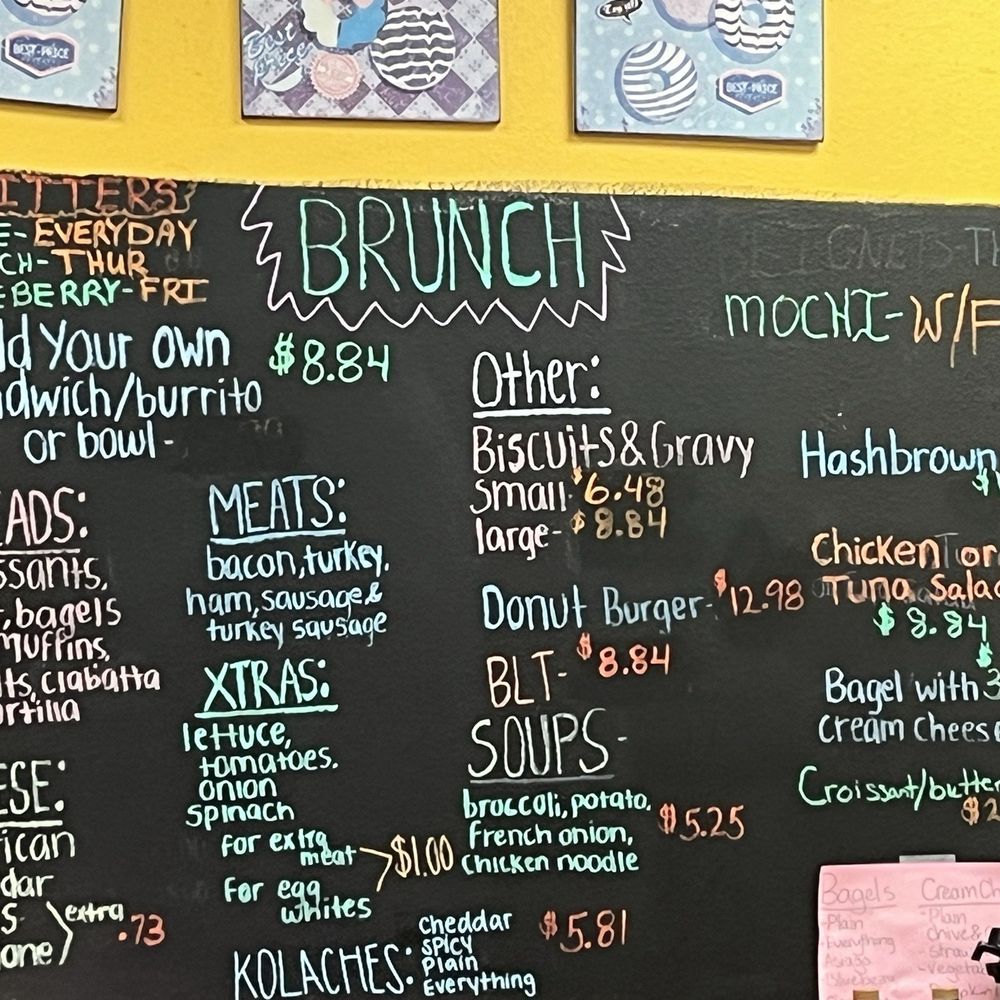 BEST-PRICE
Best Price
BEST-PRICE
ITTERS
E-EVERYDAY
CH-THUR
EBERRY-FRI
BRUNCH
ld Your own
dwich/burrito
or bowl-
$8.84
ADS:
ssants,
,bagels
muffins,
ts, ciabatta
ortilla
ESE:
ican
dar
S
one
extra
.73
MEATS:
bacon, turkey,
ham, sausage &
turkey sausage
XTRAS:
lettuce,
tomatoes.
onion
spinach
For extra
meat
For egg
whites
$1.00
KOLACHES:
Cheddar
spicy
Plain
Everything
$5.81
Other:
Biscuits & Gravy
small $6.48
large- $8.84
Donut Burger- $12.98
BLT- $8.84
SOUPS-
broccoli, potato,
French onion,
Chicken noodle
$5.25
MOCHI-W/F
Hashbrown
$1
Chicken or
Tuna Salad
$8.84
$
Bagel with 3
cream cheese
Croissant/butter
$2
Bagels
-Plain
-Everything
Cream Ch
-Plain
Chive &
-Straw
-Vegeta